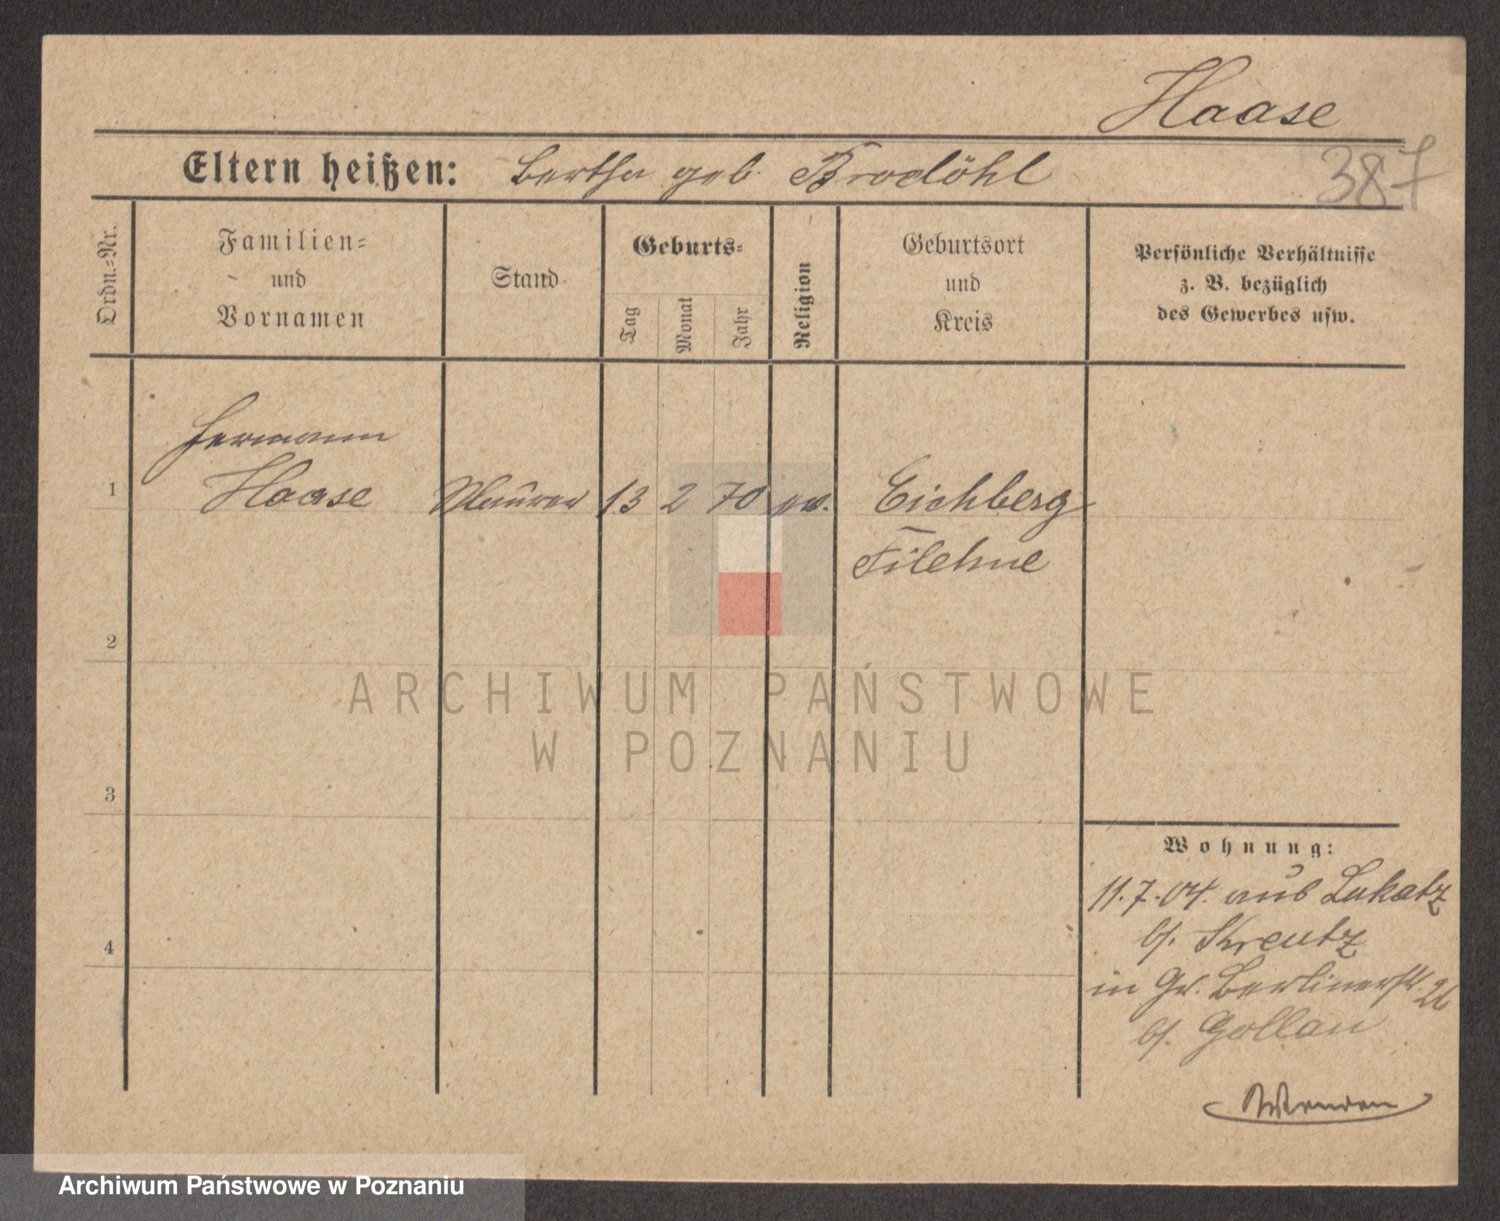 Haase
387
Eltern heißen: Bertha geb. Brodöhl
Ordn.-Nr.
Familien-
und
Vornamen
Stand
Geburts-
Tag
Monat
Jahr
Religion
Geburtsort
und
Kreis
Persönliche Verhältnisse
z. B. bezüglich
des Gewerbes usw.
Hermann
1 Haase Maurer 13 2 70 ev. Eichberg
Filehne
2
ARCHIWUM PAŃSTWOWE
W POZNANIU
3
Wohnung:
11.7.04. aus Lukatz
b/. Kreutz
4
in Gr. Berlinerstr. 26
b/. Gollan
Archiwum Państwowe w Poznaniu